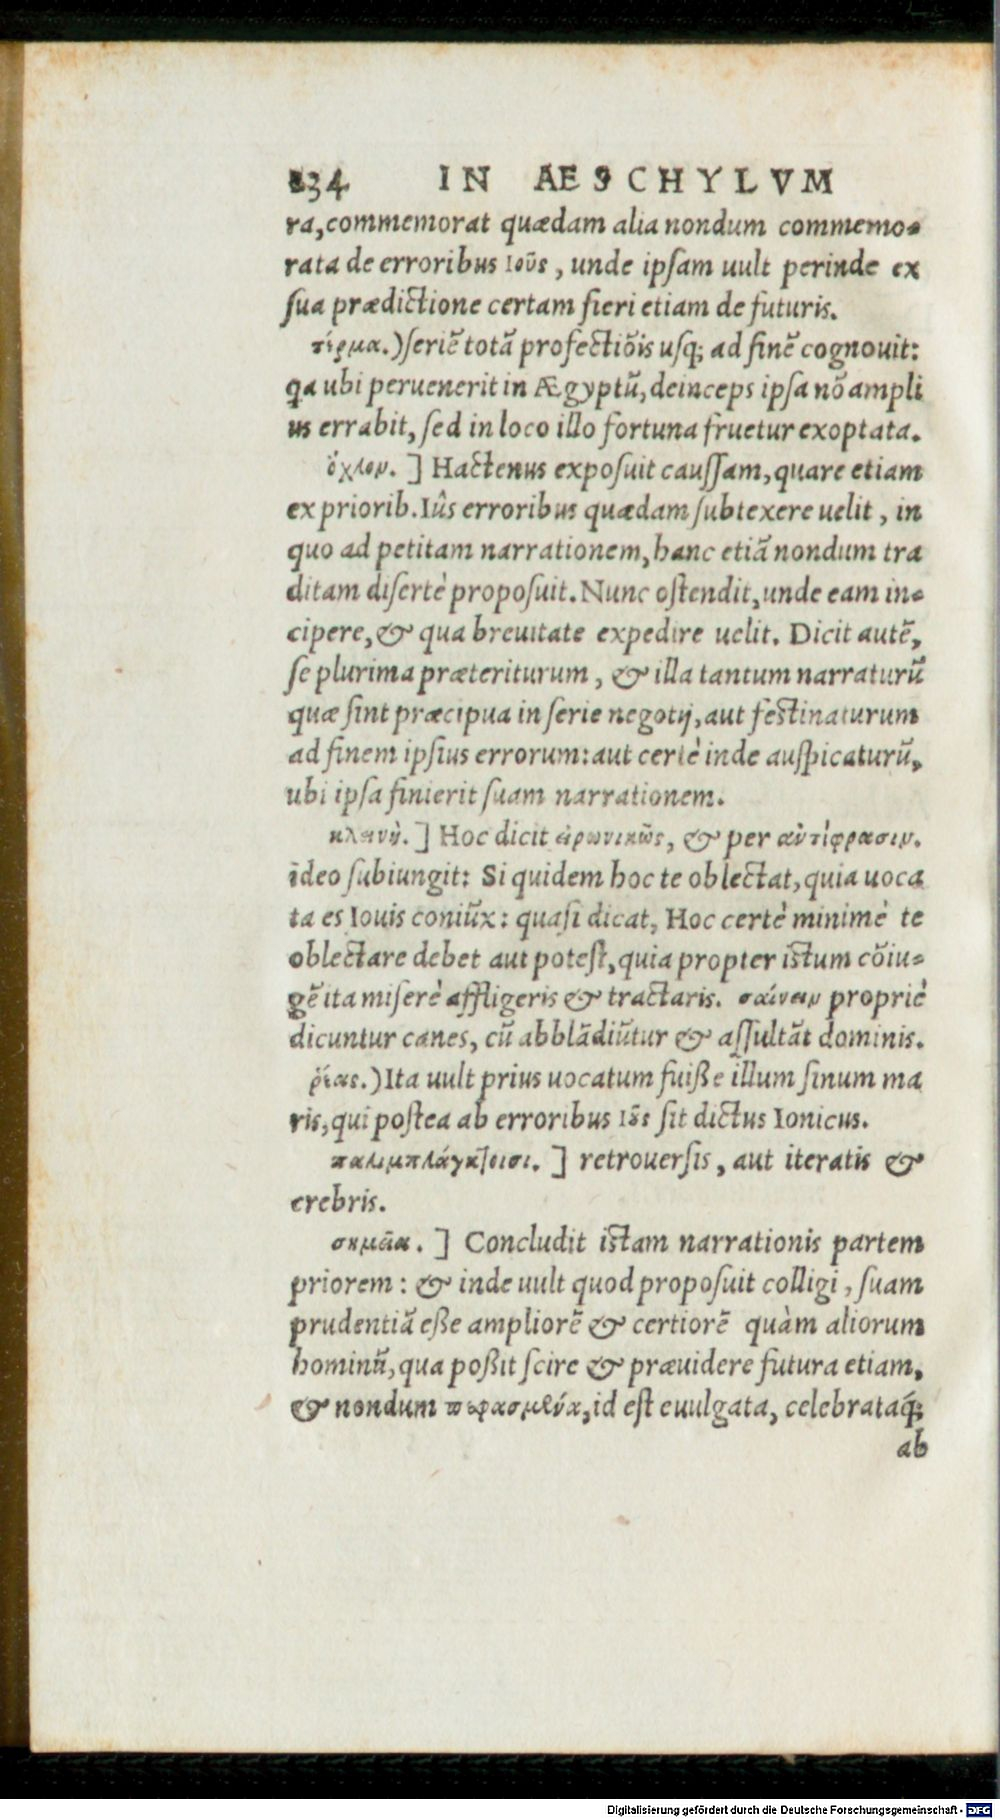 234 IN AESCHYLVM
ra, commemorat quædam alia nondum commemo-
rata de erroribus Ιοῦς, unde ipsam uult perinde ex
sua prædictione certam fieri etiam de futuris.
τέρμα.) seriē totā profectiōis usq; ad finē cognouit:
qa ubi peruenerit in Ægyptū, deinceps ipsa nō ampli
us errabit, sed in loco illo fortuna fruetur exoptata.
ὄχλον.] Hactenus exposuit caussam, quare etiam
ex priorib. Iûs erroribus quædam subtexere uelit, in
quo ad petitam narrationem, hanc etiā nondum tra
ditam disertè proposuit. Nunc ostendit, unde eam in-
cipere, & qua breuitate expedire uelit. Dicit autē,
se plurima præteriturum, & illa tantum narraturū
quæ sint præcipua in serie negotij, aut festinaturum
ad finem ipsius errorum: aut certè inde auspicaturū,
ubi ipsa finierit suam narrationem.
κλεινὴ.] Hoc dicit εἰρωνικῶς, & per ἀντίφρασιν.
ideo subiungit: Si quidem hoc te oblectat, quia uoca
ta es Iouis coniūx: quasi dicat, Hoc certè minimè te
oblectare debet aut potest, quia propter istum cōiu-
gē ita miserè affligeris & tractaris. σαίνειν propriè
dicuntur canes, cū abblādiūtur & assultāt dominis.
ῥέας.) Ita uult prius uocatum fuiße illum sinum ma
ris, qui postea ab erroribus Ιοῦς sit dictus Ionicus.
παλιμπλάγκτοισι.] retrouersis, aut iteratis &
crebris.
σημεῖα.] Concludit istam narrationis partem
priorem: & inde uult quod proposuit colligi, suam
prudentiā eße ampliorē & certiorē quàm aliorum
hominū, qua poßit scire & præuidere futura etiam,
& nondum πεφασμένα, id est euulgata, celebrataq́;
ab
Digitalisierung gefördert durch die Deutsche Forschungsgemeinschaft - DFG